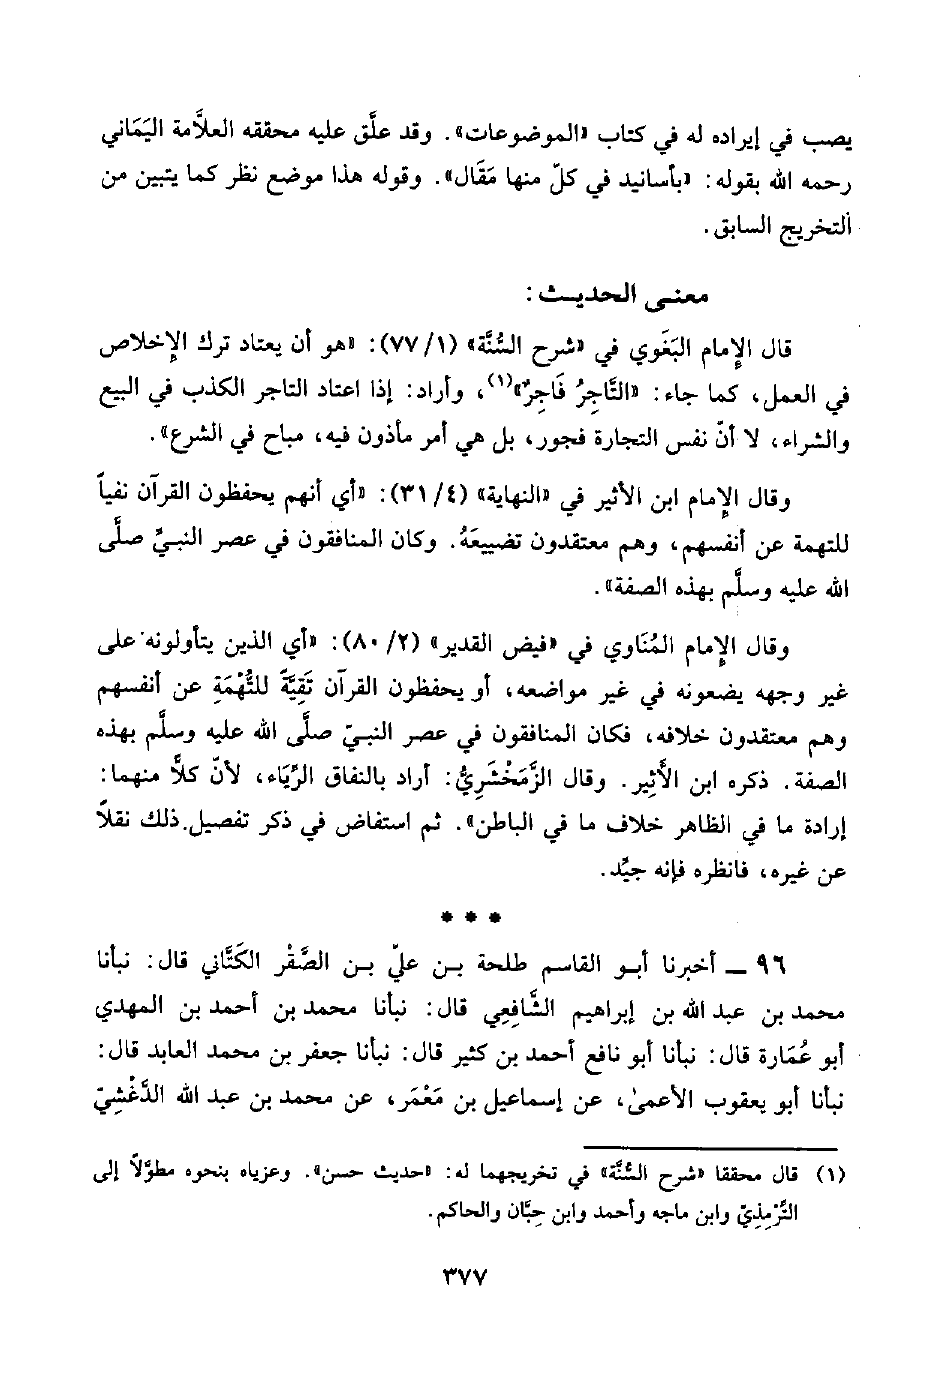 يصب في إيراده له في كتاب «الموضوعات». وقد علَّق عليه محققه العلاَّمة اليَمَاني
رحمه الله بقوله: «بأسانيد في كلّ منها مَقَال». وقوله هذا موضع نظر كما يتبين من
التخريج السابق.
معنى الحديث:
قال الإمام البَغَوي في «شرح السُّنَّة» (١/ ٧٧): «هو أن يعتاد ترك الإخلاص
في العمل، كما جاء: «التَّاجِرُ فَاجِرٌ»(١)، وأراد: إذا اعتاد التاجر الكذب في البيع
والشراء، لا أنّ نفس التجارة فجور، بل هي أمر مأذون فيه، مباح في الشرع».
وقال الإمام ابن الأثير في «النهاية» (٤/ ٣١): «أي أنهم يحفظون القرآن نفياً
للتهمة عن أنفسهم، وهم معتقدون تضييعَهُ. وكان المنافقون في عصر النبيِّ صلَّى
الله عليه وسلَّم بهذه الصفة».
وقال الإمام المُنَاوي في «فيض القدير» (٢/ ٨٠): «أي الذين يتأولونه على
غير وجهه يضعونه في غير مواضعه، أو يحفظون القرآن تَقِيَّةً للتُّهْمَةِ عن أنفسهم
وهم معتقدون خلافه، فكان المنافقون في عصر النبيّ صلَّى الله عليه وسلَّم بهذه
الصفة. ذكره ابن الأَثِير. وقال الزَّمَخْشَرِيُّ: أراد بالنفاق الرِّيَاء، لأنّ كلاًّ منهما:
إرادة ما في الظاهر خلاف ما في الباطن». ثم استفاض في ذكر تفصيل ذلك نقلاً
عن غيره، فانظره فإنه جيِّد.
* * *
٩٦ ــ أخبرنا أبو القاسم طلحة بن عليّ بن الصَّقْر الكَتَّاني قال: نبأنا
محمد بن عبد الله بن إبراهيم الشَّافِعِي قال: نبأنا محمد بن أحمد بن المهدي
أبو عُمَارة قال: نبأنا أبو نافع أحمد بن كثير قال: نبأنا جعفر بن محمد العابد قال:
نبأنا أبو يعقوب الأعمىٰ، عن إسماعيل بن مَعْمَر، عن محمد بن عبد الله الدَّغْشِيّ
(١) قال محققا «شرح السُّنَّة» في تخريجهما له: «حديث حسن». وعزياه بنحوه مطوَّلاً إلى
التِّرْمِذِيّ وابن ماجه وأحمد وابن حِبَّان والحاكم.
٣٧٧